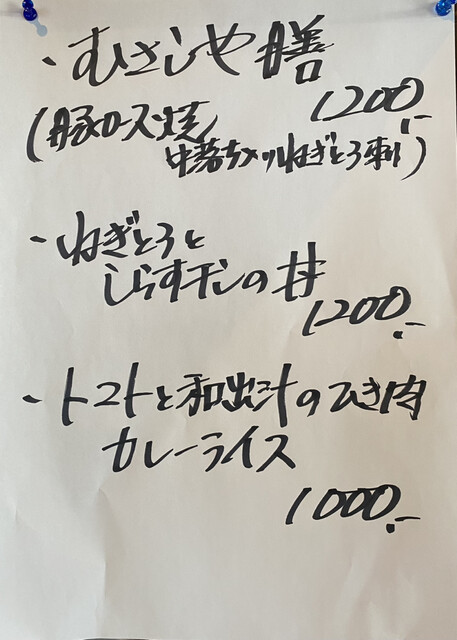 ・むさしや膳
1200.-
(豚ロース焼
中落ち入りねぎとろ刺)
・ねぎとろと
しらす干しの丼
1200.-
・トマトと和出汁のひき肉
カレーライス
1000.-